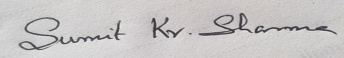 Sumit Kr. Sharma